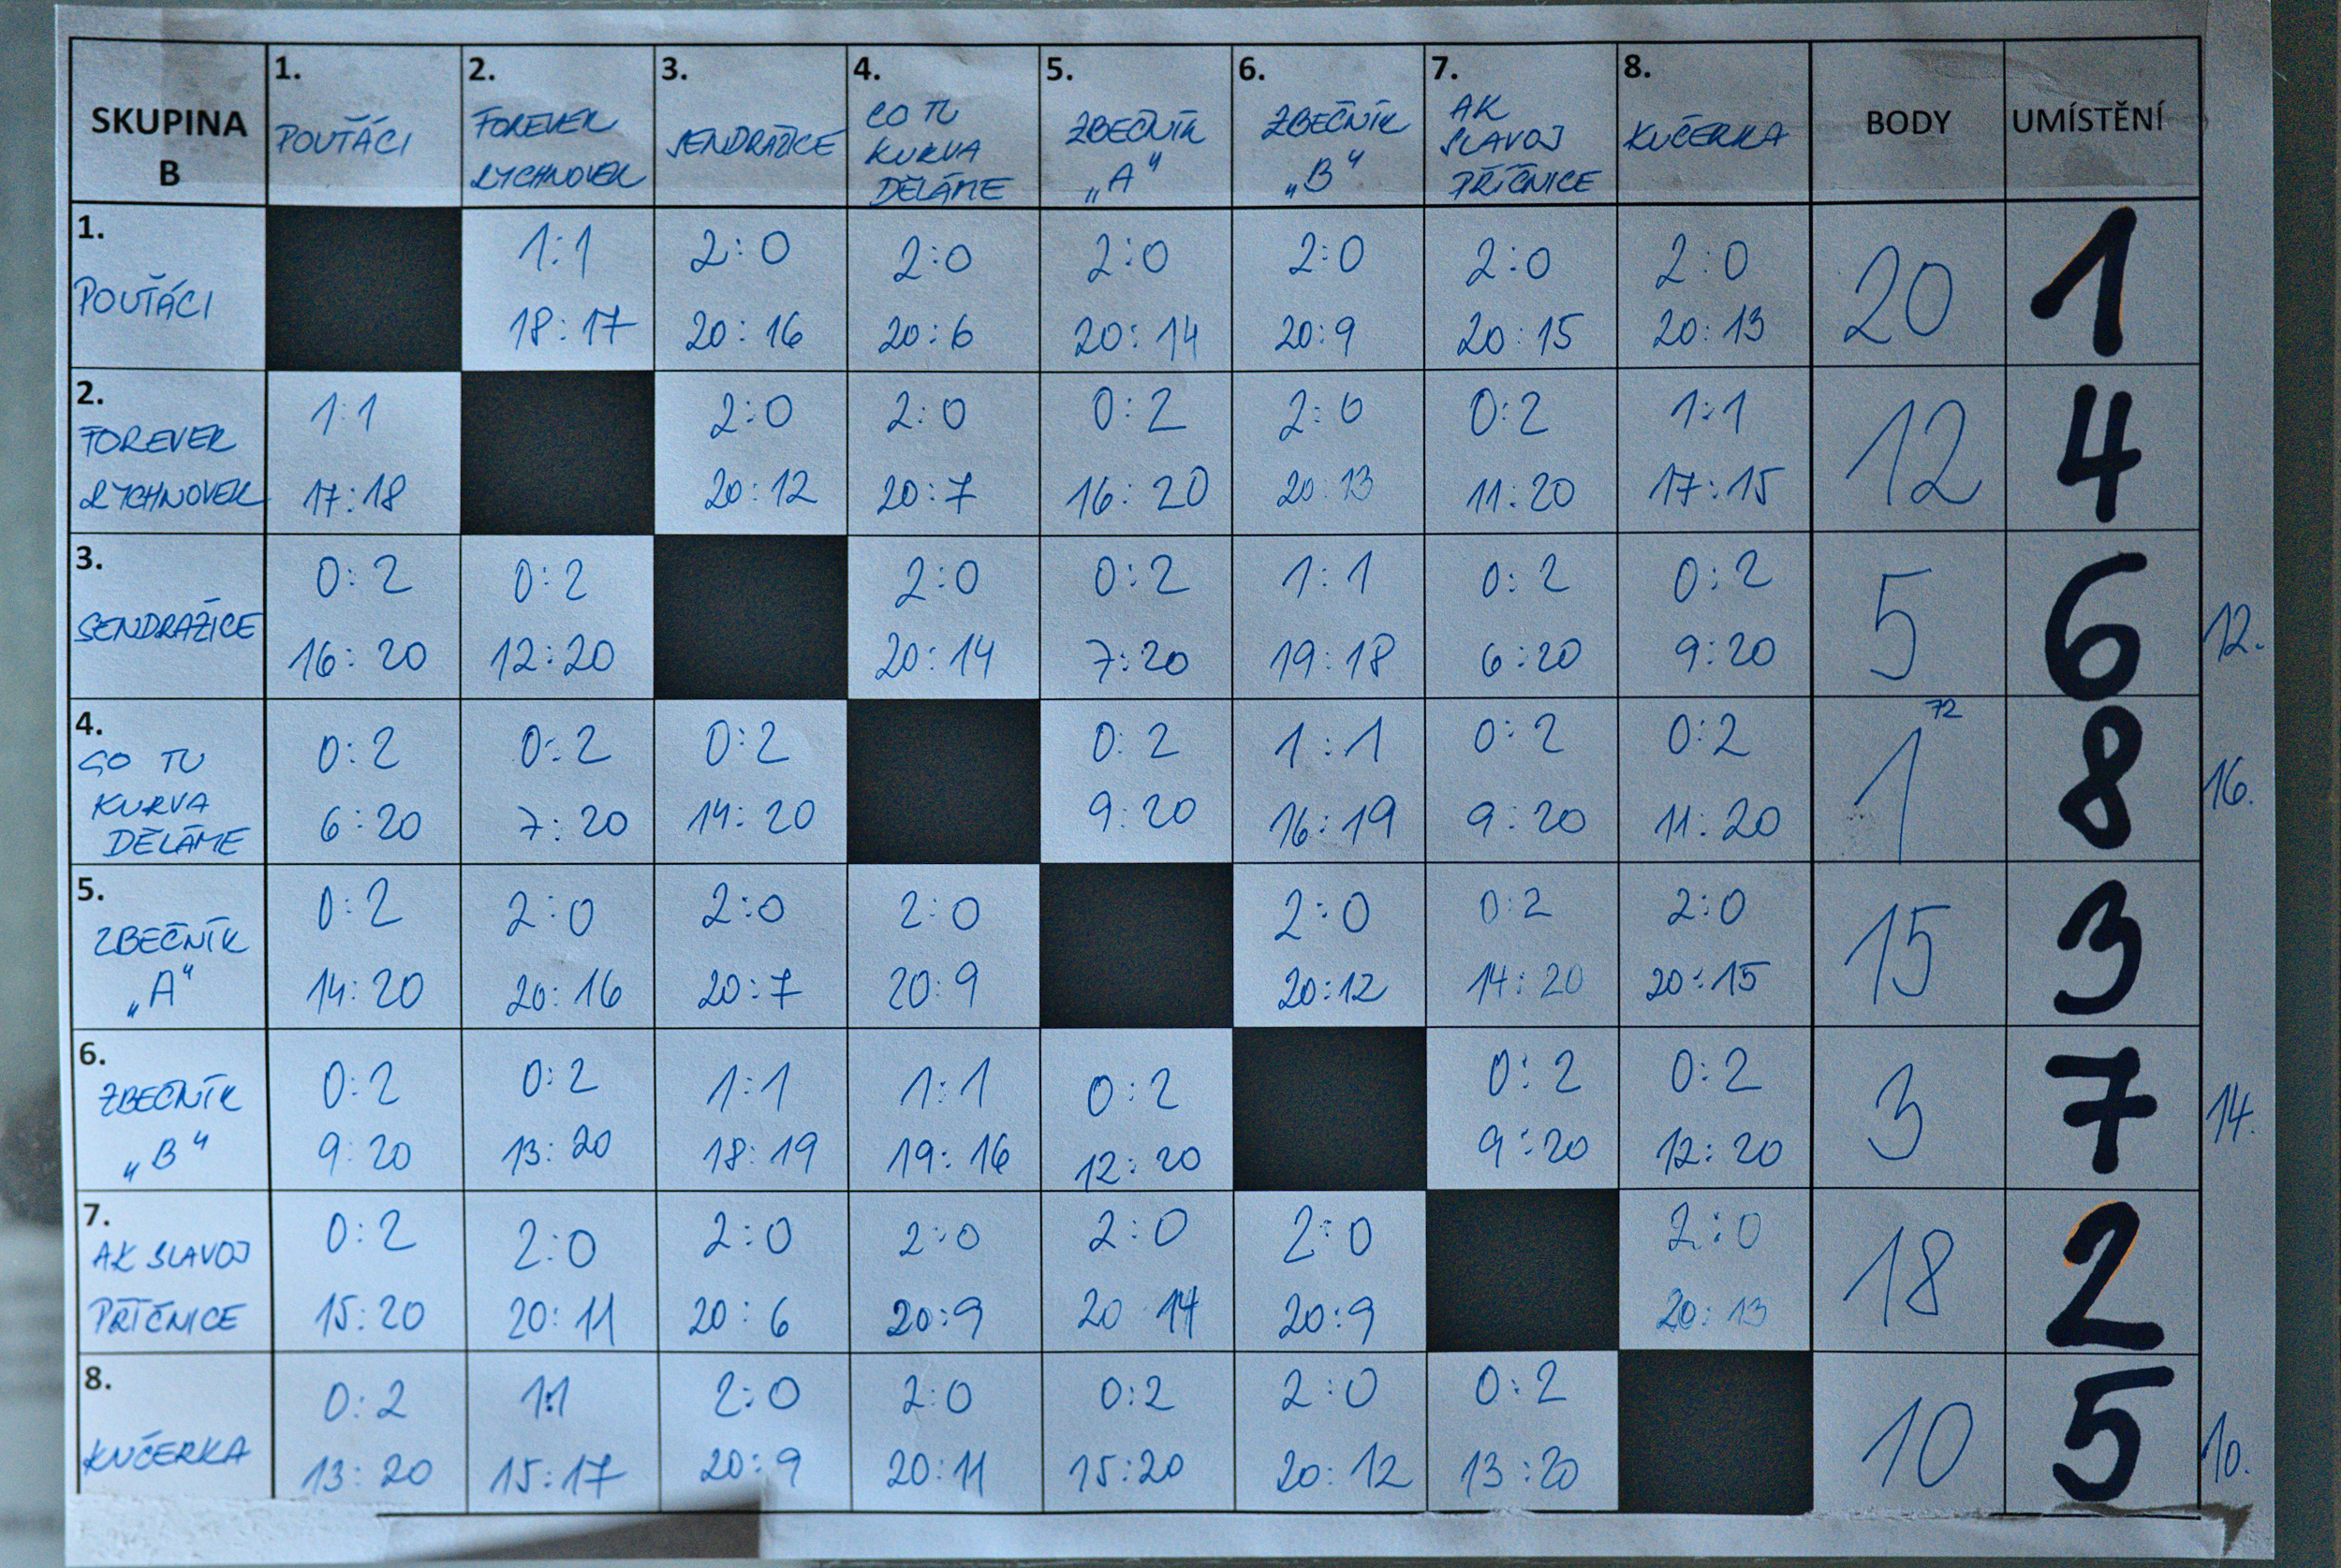 SKUPINA B
1. POUŤÁCI
2. FOREVER RYCHNOVEK
3. SENDRAŽICE
4. CO TU KURVA DĚLÁME
5. ZBEČNÍK „A"
6. ZBEČNÍK „B"
7. AK SLAVOJ PŘÍČNICE
8. KUČERKA
BODY
UMÍSTĚNÍ
1. POUŤÁCI
1:1 2:0 2:0 2:0 2:0 2:0 2:0
18:17 20:16 20:6 20:14 20:9 20:15 20:13
20 1
2. FOREVER RYCHNOVEK
1:1 2:0 2:0 0:2 2:0 0:2 1:1
17:18 20:12 20:7 16:20 20:13 11:20 17:15
12 4
3. SENDRAŽICE
0:2 0:2 2:0 0:2 1:1 0:2 0:2
16:20 12:20 20:14 7:20 19:18 6:20 9:20
5 6 12.
4. CO TU KURVA DĚLÁME
0:2 0:2 0:2 0:2 1:1 0:2 0:2
6:20 7:20 14:20 9:20 16:19 9:20 11:20
1 72 8 16.
5. ZBEČNÍK „A"
0:2 2:0 2:0 2:0 2:0 0:2 2:0
14:20 20:16 20:7 20:9 20:12 14:20 20:15
15 3
6. ZBEČNÍK „B"
0:2 0:2 1:1 1:1 0:2 0:2 0:2
9:20 13:20 18:19 19:16 12:20 9:20 12:20
3 7 14.
7. AK SLAVOJ PŘÍČNICE
0:2 2:0 2:0 2:0 2:0 2:0 2:0
15:20 20:11 20:6 20:9 20:14 20:9 20:13
18 2
8. KUČERKA
0:2 1:1 2:0 2:0 0:2 2:0 0:2
13:20 15:17 20:9 20:11 15:20 20:12 13:20
10 5 10.